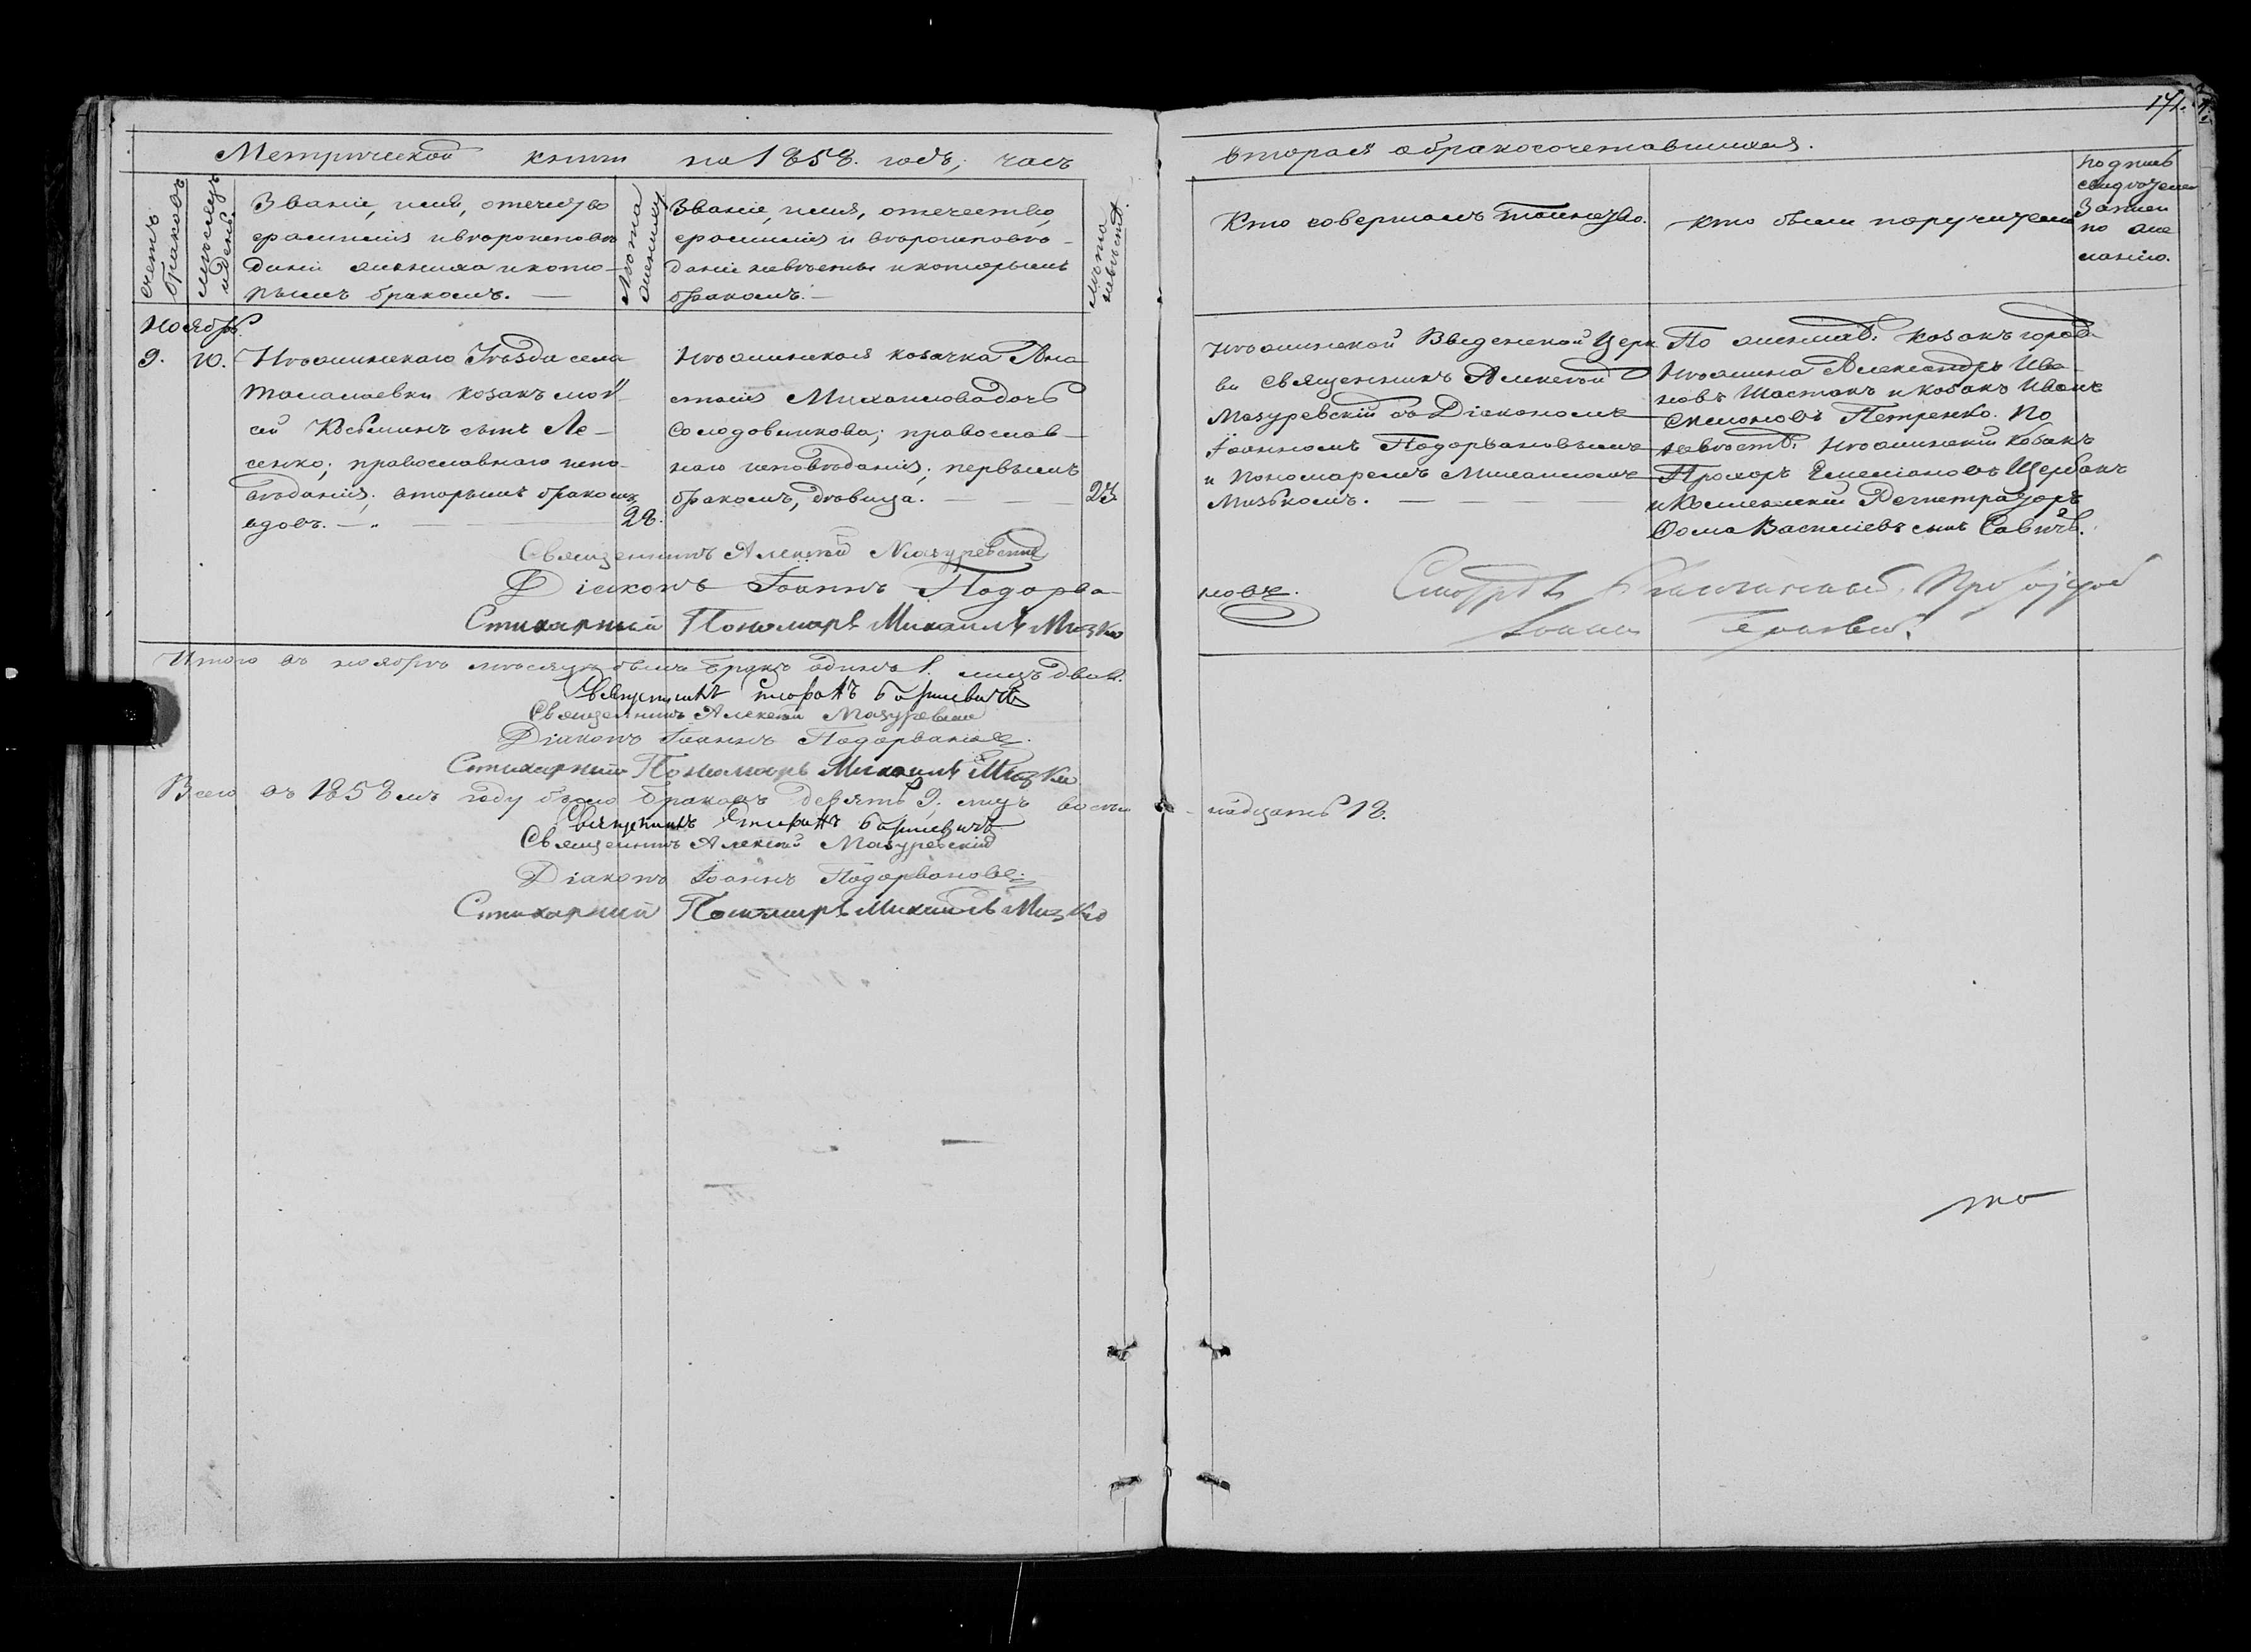 171.
Метрической книги на 1858. годъ, часть
вторая о бракосочетавшихся.
счетъ браковъ
мѣсяцъ и день.
Званіе, имя, отечество
фамилія и вѣроисповѣ
даніе жениха и кото-
рымъ бракомъ. —
Лѣта жениха
Званіе, имя, отечество,
фамилія и вѣроисповѣ-
даніе невѣсты и которымъ
бракомъ. —
Лѣта невѣсты.
Кто совершалъ таинство.
Кто были поручители
Подпись
свидѣтелей
записи
по же
ланію.
Ноябрь
9.
10.
Нѣжинскаго Уѣзда села
Талалаевки козакъ Мой-
сей Косьминъ сынъ Ле-
сенко; православнаго испо-
вѣданія; вторымъ бракомъ,
вдовъ. —
28.
Нѣжинская козачка Ана
стасія Михаилова дочь
Солодовникова; православ-
наго исповѣданія; первымъ
бракомъ, дѣвица. —
23
Нѣжинской Введенской Церк
ви Священникъ Алексѣй
Мазуревскій съ Діакономъ
Іоанномъ Подорвановымъ
и Пономаремъ Михаиломъ
Мизькомъ. —
По женихѣ: козакъ города
Нѣжина Александръ Ива-
новъ Шастакъ и козакъ Иванъ
Симоновъ Петренко. По
невѣстѣ: Нѣжинскій козакъ
Прохоръ Емеліановъ Щербакъ
и Колежскій Регистраторъ
Ѳома Василіевъ сынъ Савичъ.
Священникъ Алексѣй Мазуревскій
Діаконъ Іоаннъ Подорва-
новъ.
Стихарный Пономарь Михаилъ Мизко
Смотрѣлъ Благочинный, Протоіерей
Іоаннъ
Итого въ ноябрѣ мѣсяцѣ былъ бракъ одинъ 1. лицъ двое.
Священникъ
Священникъ Алексѣй Мазуревскій
Діаконъ Іоаннъ Подорвановъ.
Стихарный Пономарь Михаилъ Мизко
Всего въ 1858мъ году было браковъ девять 9. лицъ восем
надцать 18.
Священникъ
Священникъ Алексѣй Мазуревскій
Діаконъ Іоаннъ Подорвановъ.
Стихарный Пономарь Михаилъ Мизко